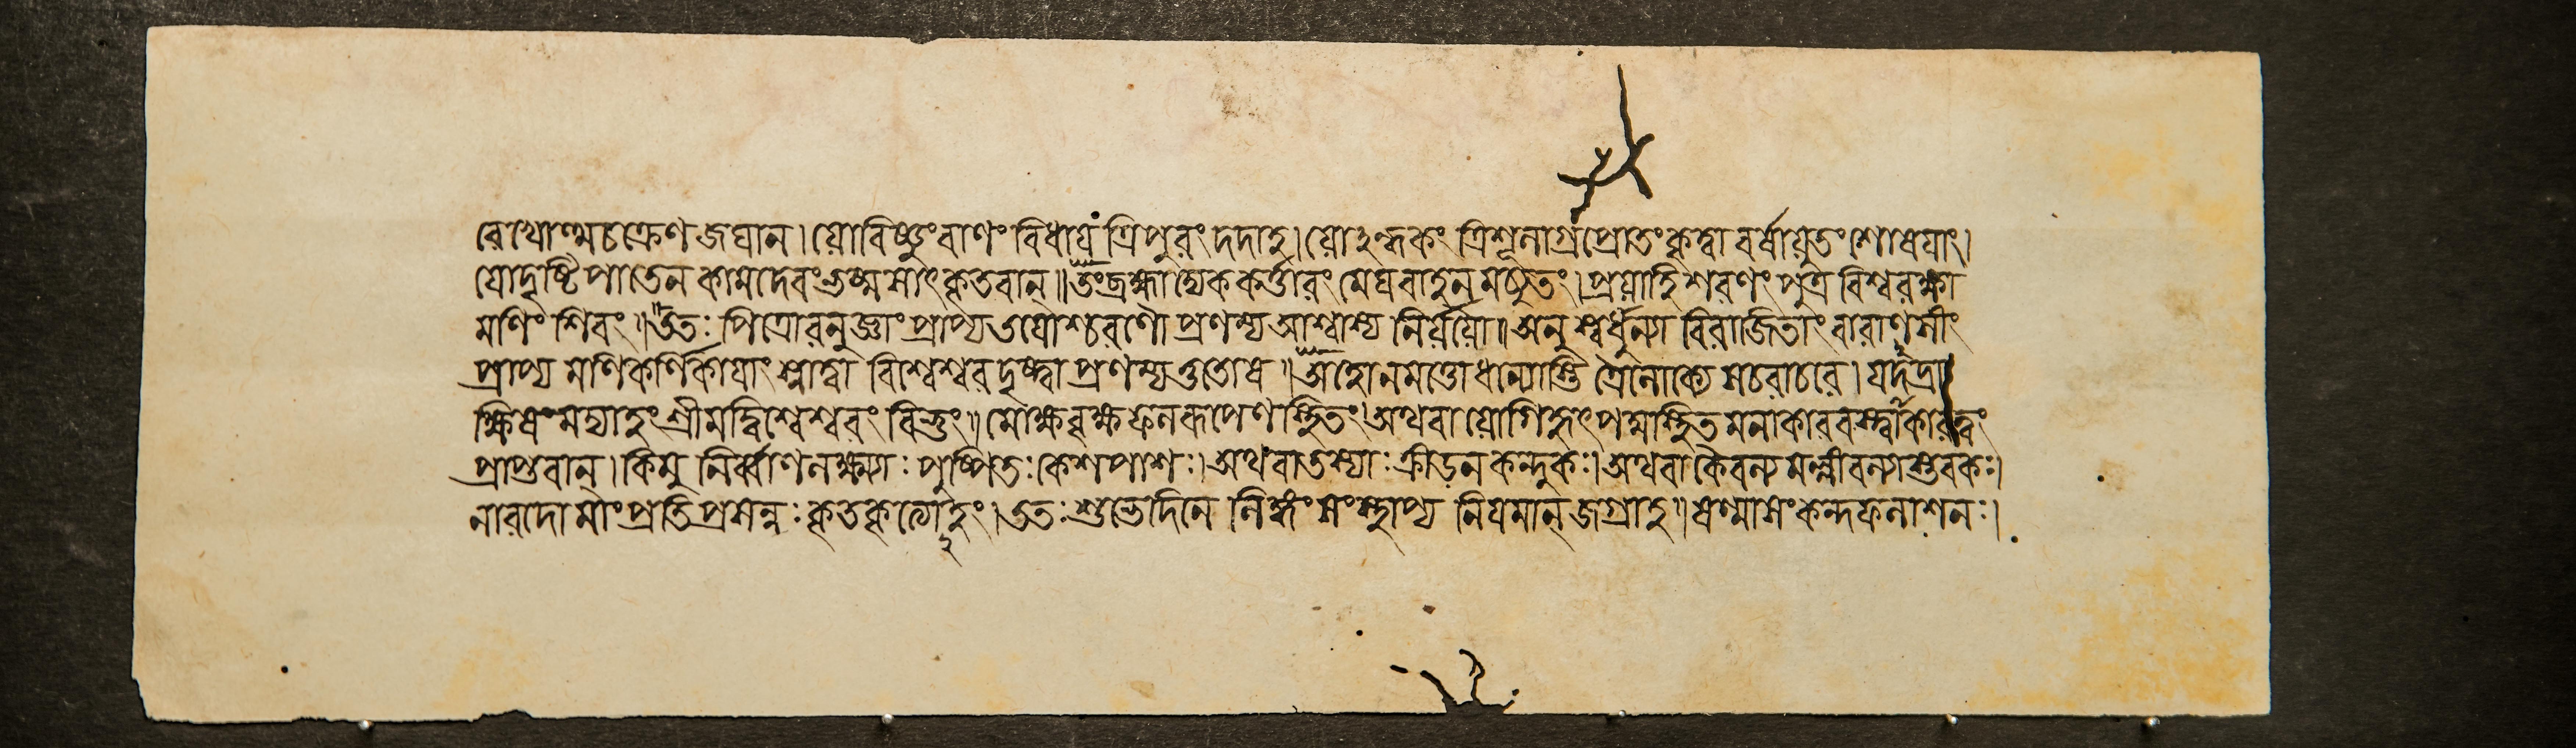 রেখোত্থচক্রেণ জঘান। যো বিষ্ণুং বাণং বিধায় ত্রিপুরং দদাহ। যোঽন্ধকং ত্রিশূলাগ্রপ্রোতং কৃত্বা বর্ষায়ুতং শোষয়াং।
যো দৃষ্টিপাতেন কামদেবং ভষ্মসাৎ কৃতবান্॥ তং ব্রহ্মাদ্যেককর্ত্তারং মেঘবাহনমচ্যুতং। প্রয়াহি শরণং পুত্র বিশ্বরক্ষা
মণিং শিবং॥ ততঃ পিত্রোরনুজ্ঞাং প্রাপ্য তয়োশ্চরণৌ প্রণম্য আশ্বাস্য নির্য্যযৌ॥ অনু স্বর্ধুন্যা বিরাজিতাং বারাণসীং
প্রাপ্য মণিকর্ণিকায়াং স্নাত্বা বিশ্বেশ্বর দৃষ্ট্বা প্রণম্য তুতোষ॥ অহো ন মত্তো ধন্যোস্তি ত্রৈলোক্যে সচরাচরে। যদদ্রা
ক্ষিষং মদ্যাহং শ্রীমদ্বিশ্বেশ্বরং বিভুং॥ মোক্ষবৃক্ষফলরূপেণ স্থিতং। অথবা যোগিহৃৎপদ্মস্থিতমনাকারবস্ত্বাকারত্বং
প্রাপ্তবান্। কিমু নির্ব্বাণলক্ষ্ম্যাঃ পুষ্পিতঃ কেশপাশঃ। অথবা তস্যাঃ ক্রীড়নকন্দুকঃ। অথবা কৈবল্যমল্লীবল্যাস্তবকঃ।
নারদো মাং প্রতি প্রসন্নঃ কৃতকৃত্যোহং। ততঃ শুভে দিনে লিঙ্গং সংস্থাপ্য নিয়মান্ জগ্রাহ॥ ষণ্মাসং কন্দফলাশনঃ।